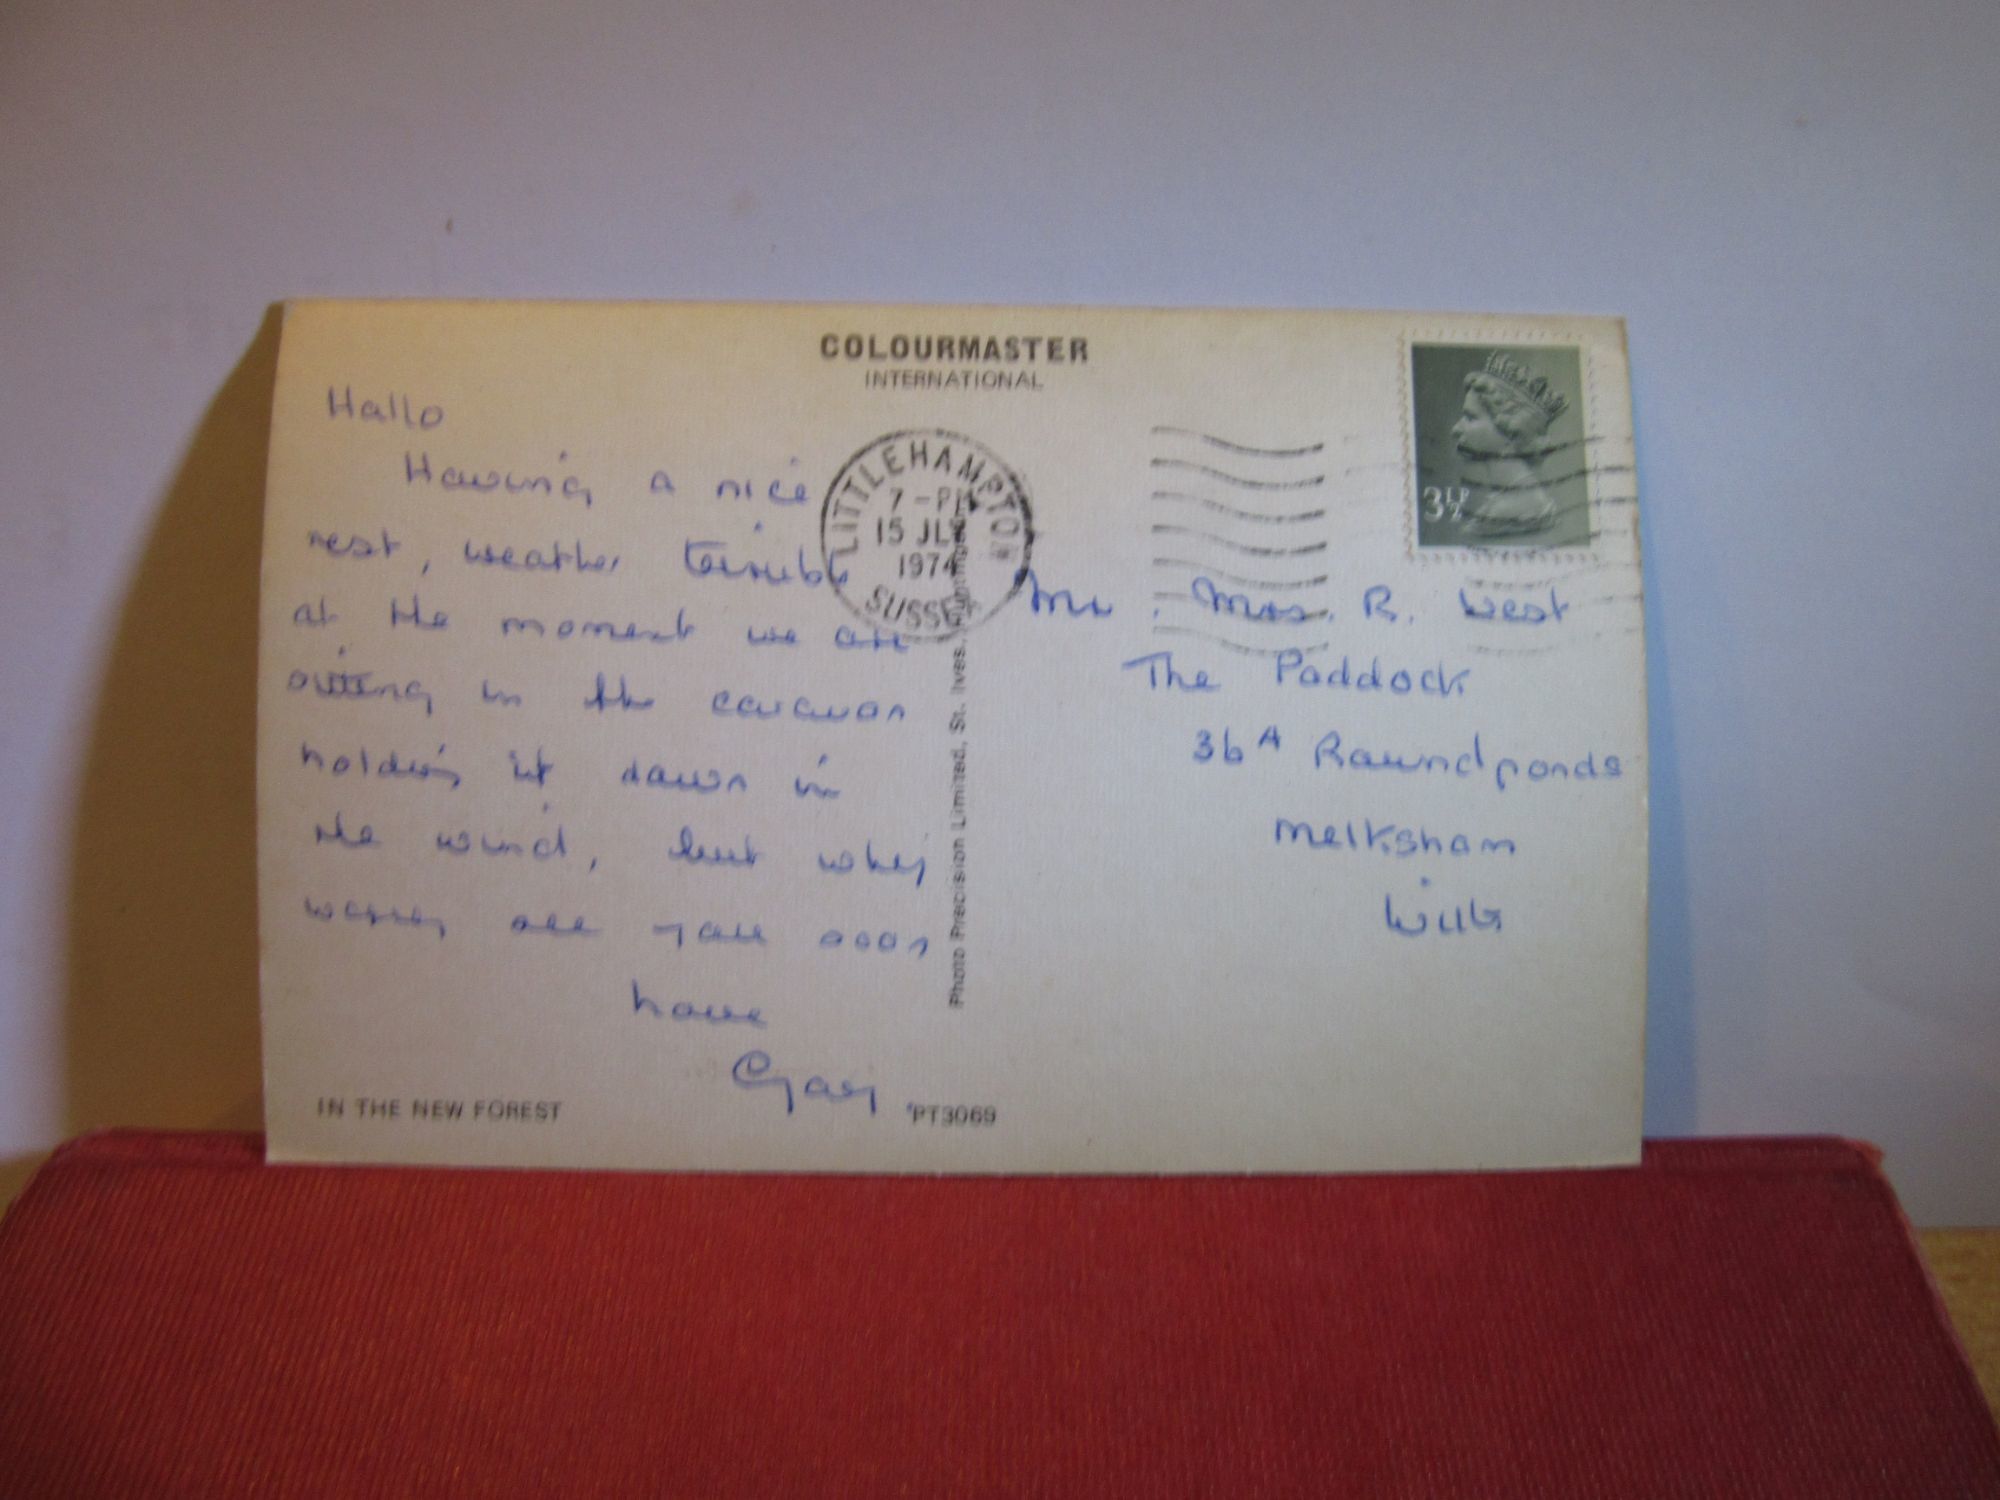 COLOURMASTER
INTERNATIONAL
Hallo
Having a nice
rest, weather terrible
at the moment we are
sitting in the caravan
holding it down in
the wind, but why
worry see you soon
love
Gay
IN THE NEW FOREST
PT3069
LITTLEHAMPTON
7 - PM
15 JLY
1974
SUSSEX
Photo Precision Limited, St. Ives,
3½P
Mr. Mrs. R. West
The Paddock
36A Roundponds
Melksham
Wilts